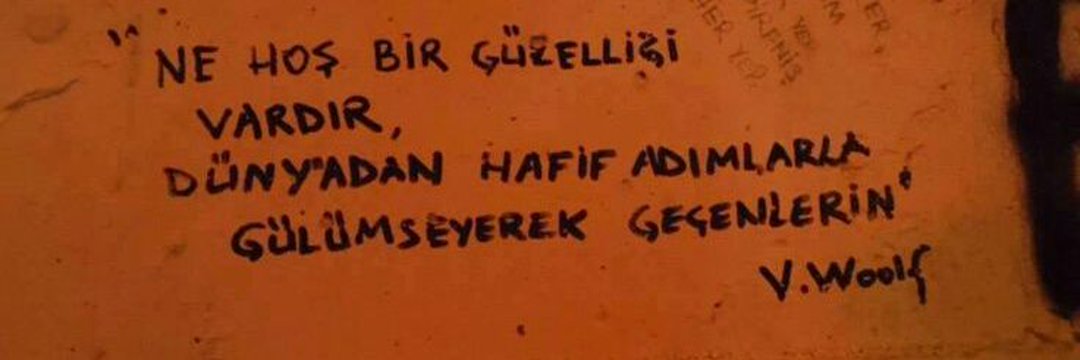 "NE HOŞ BİR GÜZELLİĞİ
VARDIR,
DÜNY'ADAN HAFİF ADIMLARLA
GÜLÜMSEYEREK GEÇENLERİN"
V.Woolf
HER YER